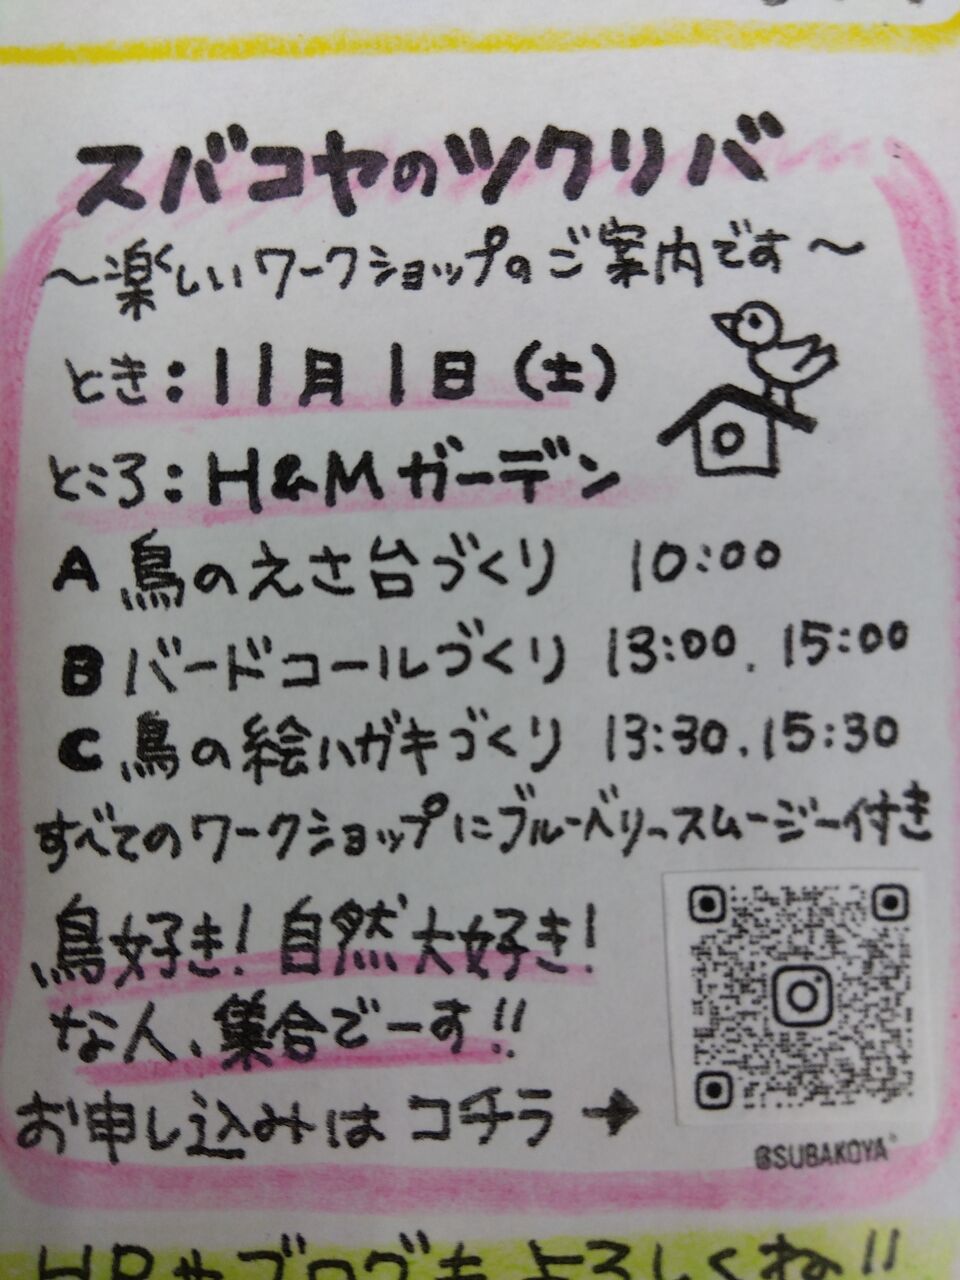 スバコヤのツクリバ
～楽しいワークショップのご案内です～
とき：11月1日(土)
ところ：H&Mガーデン
A 鳥のえさ台づくり 10:00
B バードコールづくり 13:00、15:00
C 鳥の絵ハガキづくり 13:30、15:30
すべてのワークショップにブルーベリースムージー付き
鳥好き！自然大好き！
な人、集合でーす!!
お申し込みはコチラ→
@SUBAKOYA
HPやブログもよろしくね!!